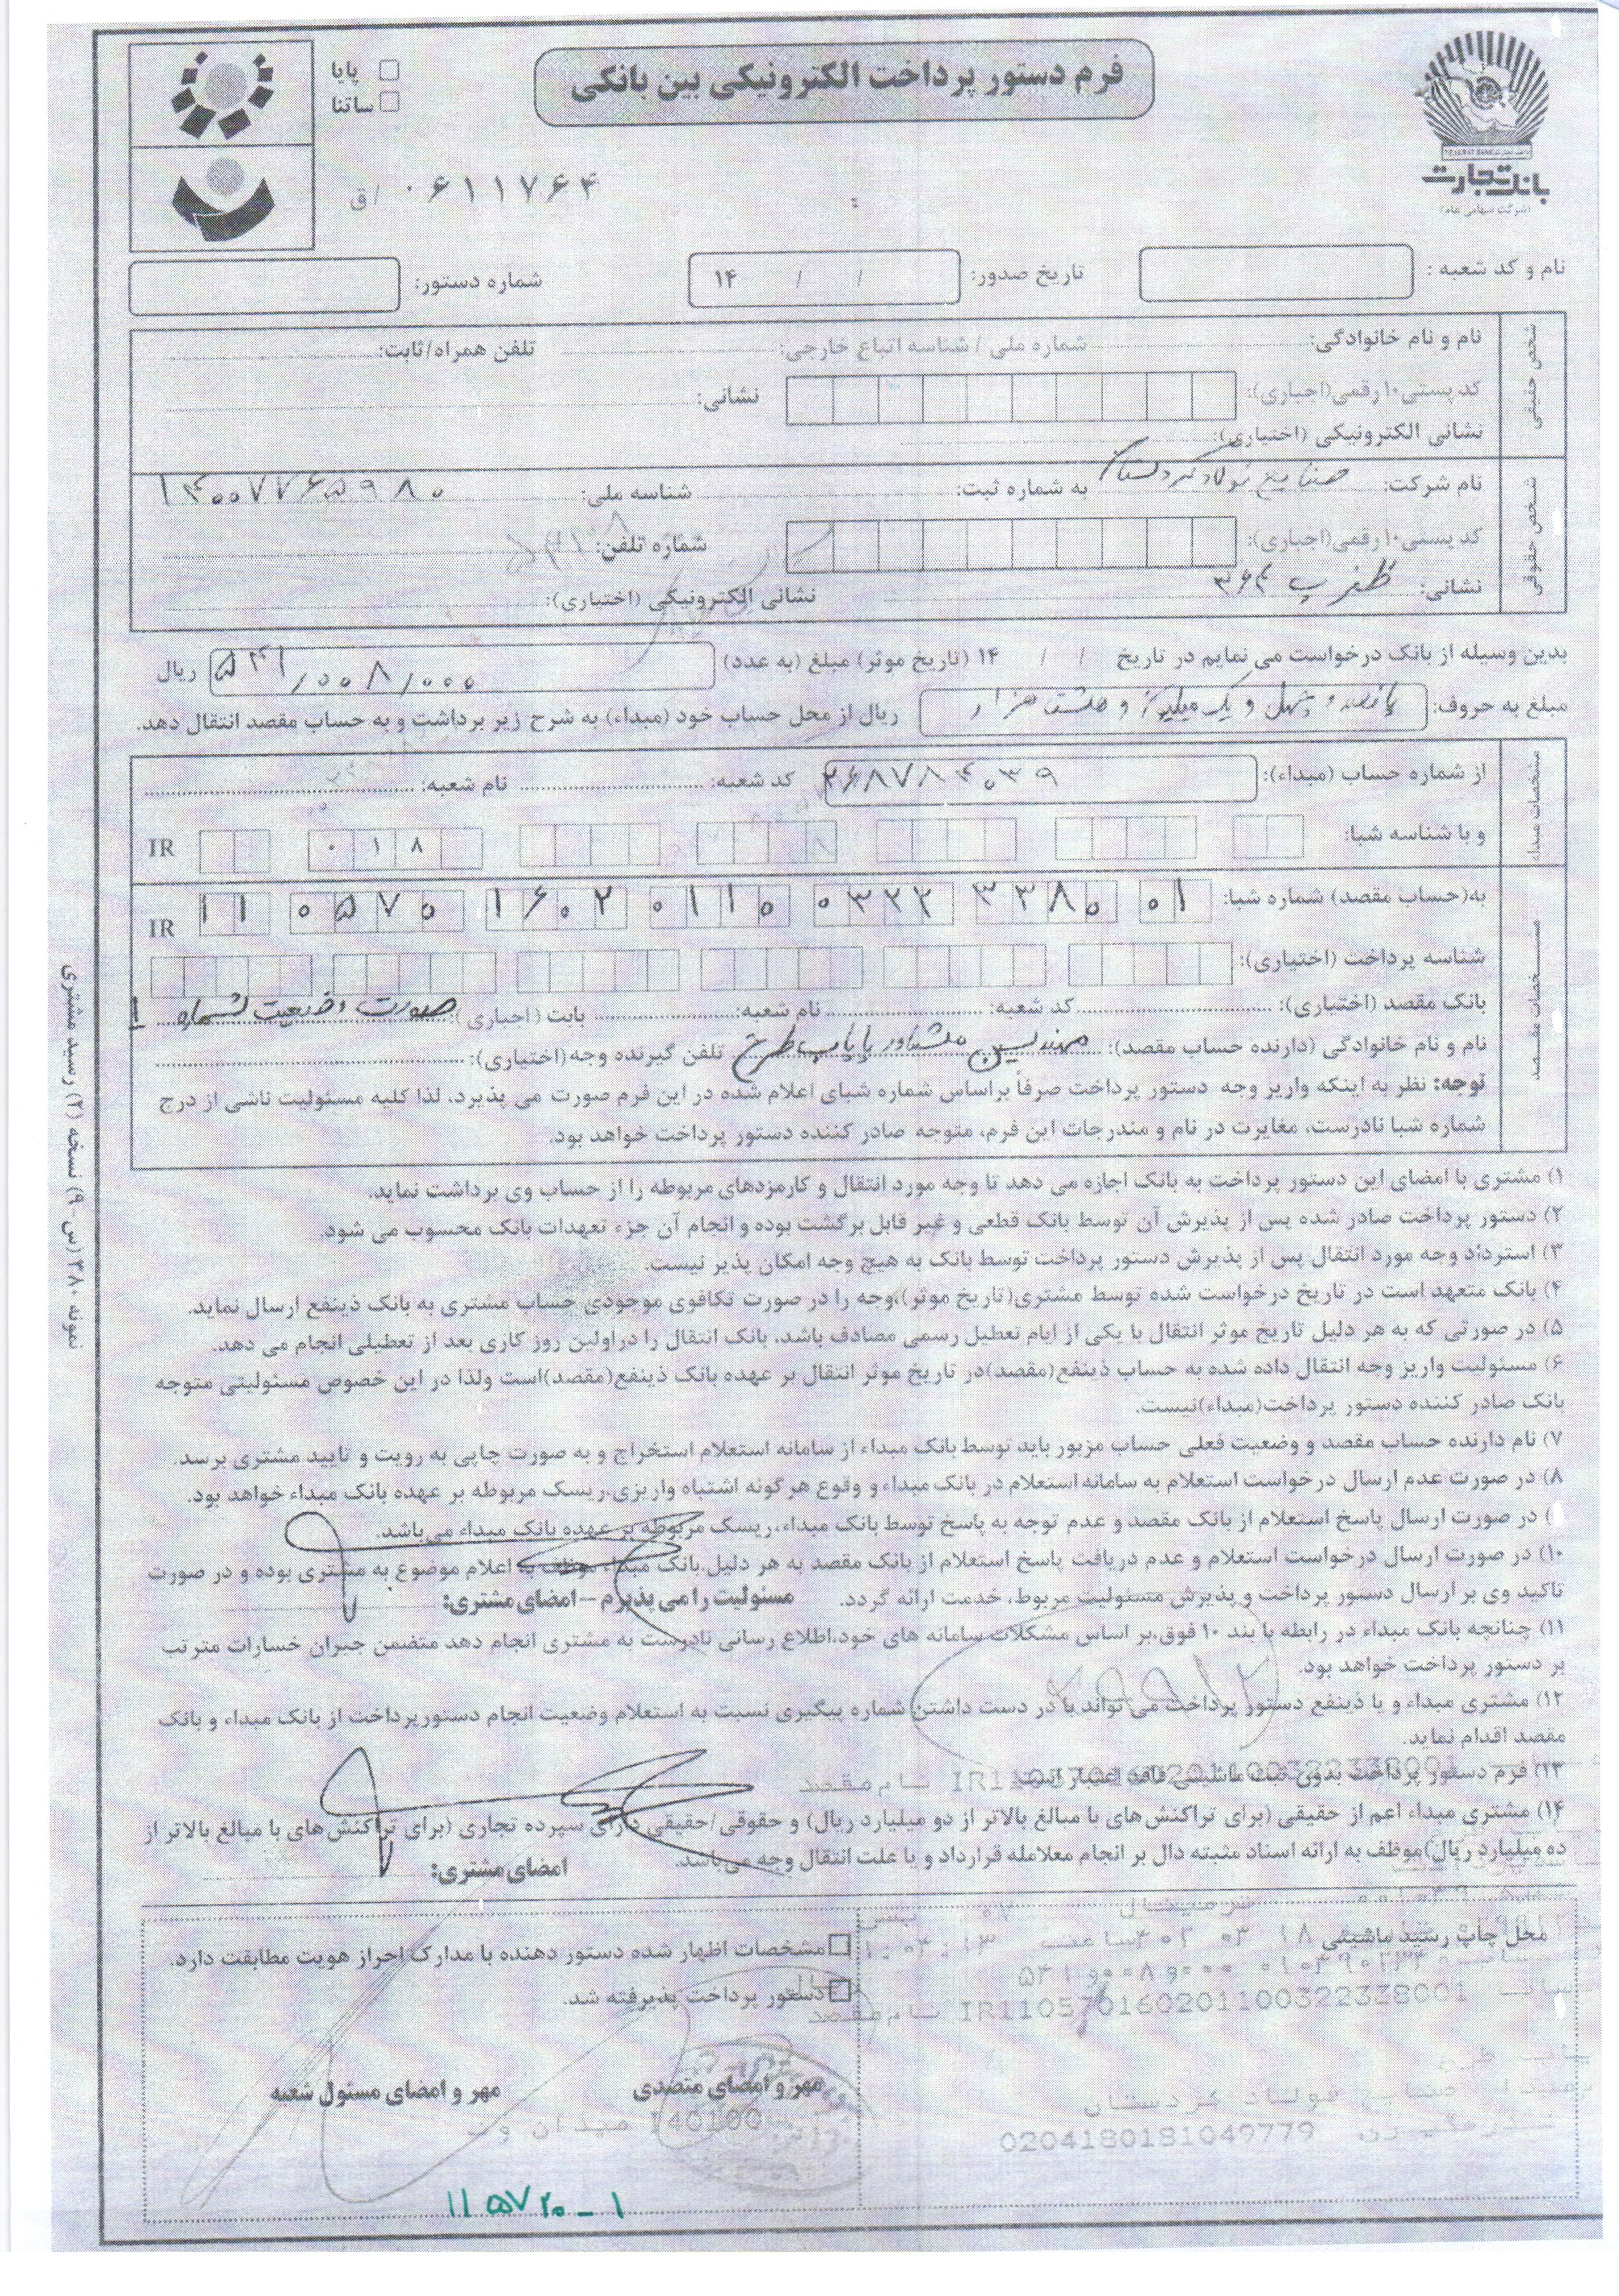 فرم دستور پرداخت الکترونیکی بین بانکی
پایا
ساتنا
بانک تجارت
(شرکت سهامی عام)
۰۶۱۱۷۶۴ /ق
نام و کد شعبه :
تاریخ صدور: / / ۱۴
شماره دستور:
شخص حقیقی
نام و نام خانوادگی: شماره ملی / شناسه اتباع خارجی: تلفن همراه/ثابت:
کد پستی ۱۰ رقمی(اجباری): نشانی:
نشانی الکترونیکی (اختیاری):
شخص حقوقی
نام شرکت: صنایع فولاد کردستان به شماره ثبت: شناسه ملی: ۱۴۰۰۷۷۶۵۹۸۰
کد پستی ۱۰ رقمی(اجباری): شماره تلفن:
نشانی: ظفر پ ۳۶۴ نشانی الکترونیکی (اختیاری):
بدین وسیله از بانک درخواست می نمایم در تاریخ / / ۱۴ (تاریخ موثر) مبلغ (به عدد) ۵۴۱/۰۰۸/۰۰۰ ریال
مبلغ به حروف: پانصد و چهل و یک میلیون و هشت هزار ریال از محل حساب خود (مبداء) به شرح زیر برداشت و به حساب مقصد انتقال دهد.
مشخصات مبداء
از شماره حساب (مبداء): ۲۶۸۷۸۴۰۳۹ کد شعبه: نام شعبه:
و با شناسه شبا: ۰۱۸ IR
مشخصات مقصد
به(حساب مقصد) شماره شبا: IR ۱۱ ۰۵۷۰ ۱۶۰۲ ۰۱۱۰ ۰۳۲۲ ۳۳۸۰ ۰۱
شناسه پرداخت (اختیاری):
بانک مقصد (اختیاری): کد شعبه: نام شعبه: بابت (اجباری): صورت وضعیت شماره ۱
نام و نام خانوادگی (دارنده حساب مقصد): مهندسین مشاور پایاب طرح تلفن گیرنده وجه(اختیاری):
توجه: نظر به اینکه واریز وجه دستور پرداخت صرفاً براساس شماره شبای اعلام شده در این فرم صورت می پذیرد، لذا کلیه مسئولیت ناشی از درج
شماره شبا نادرست، مغایرت در نام و مندرجات این فرم، متوجه صادر کننده دستور پرداخت خواهد بود.
۱) مشتری با امضای این دستور پرداخت به بانک اجازه می دهد تا وجه مورد انتقال و کارمزدهای مربوطه را از حساب وی برداشت نماید.
۲) دستور پرداخت صادر شده پس از پذیرش آن توسط بانک قطعی و غیر قابل برگشت بوده و انجام آن جزء تعهدات بانک محسوب می شود.
۳) استرداد وجه مورد انتقال پس از پذیرش دستور پرداخت توسط بانک به هیچ وجه امکان پذیر نیست.
۴) بانک متعهد است در تاریخ درخواست شده توسط مشتری(تاریخ موثر)،وجه را در صورت تکافوی موجودی حساب مشتری به بانک ذینفع ارسال نماید.
۵) در صورتی که به هر دلیل تاریخ موثر انتقال با یکی از ایام تعطیل رسمی مصادف باشد، بانک انتقال را دراولین روز کاری بعد از تعطیلی انجام می دهد.
۶) مسئولیت واریز وجه انتقال داده شده به حساب ذینفع(مقصد)در تاریخ موثر انتقال بر عهده بانک ذینفع(مقصد)است ولذا در این خصوص مسئولیتی متوجه
بانک صادر کننده دستور پرداخت(مبداء)نیست.
۷) نام دارنده حساب مقصد و وضعیت فعلی حساب مزبور باید توسط بانک مبداء از سامانه استعلام استخراج و به صورت چاپی به رویت و تایید مشتری برسد.
۸) در صورت عدم ارسال درخواست استعلام به سامانه استعلام در بانک مبداء و وقوع هرگونه اشتباه واریزی،ریسک مربوطه بر عهده بانک مبداء خواهد بود.
) در صورت ارسال پاسخ استعلام از بانک مقصد و عدم توجه به پاسخ توسط بانک مبداء،ریسک مربوطه بر عهده بانک مبداء می‌باشد.
۱۰) در صورت ارسال درخواست استعلام و عدم دریافت پاسخ استعلام از بانک مقصد به هر دلیل،بانک مبداء موظف به اعلام موضوع به مشتری بوده و در صورت
تاکید وی بر ارسال دستور پرداخت و پذیرش مسئولیت مربوط، خدمت ارائه گردد. مسئولیت را می پذیرم – امضای مشتری:
۱۱) چنانچه بانک مبداء در رابطه با بند ۱۰ فوق،بر اساس مشکلات سامانه های خود،اطلاع رسانی نادرست به مشتری انجام دهد متضمن جبران خسارات مترتب
بر دستور پرداخت خواهد بود.
۱۲) مشتری مبداء و یا ذینفع دستور پرداخت می تواند با در دست داشتن شماره پیگیری نسبت به استعلام وضعیت انجام دستورپرداخت از بانک مبداء و بانک
مقصد اقدام نماید.
۱۳) فرم دستور پرداخت بدون ثبت ماشینی فاقد اعتبار است.
IR110570160201100322338001 نام مقصد
۱۴) مشتری مبداء اعم از حقیقی (برای تراکنش‌های با مبالغ بالاتر از دو میلیارد ریال) و حقوقی/حقیقی دارای سپرده تجاری (برای تراکنش‌های با مبالغ بالاتر از
ده میلیارد ریال)موظف به ارائه اسناد مثبته دال بر انجام معامله قرارداد و یا علت انتقال وجه می‌باشد.
امضای مشتری:
محل چاپ رسید ماشینی
IR110570160201100322338001 نام مقصد
فولاد کردستان
0204180181049779
مشخصات اظهار شده دستور دهنده با مدارک احراز هویت مطابقت دارد.
دستور پرداخت پذیرفته شد.
مهر و امضای متصدی
مهر و امضای مسئول شعبه
۱۱۵۷۲۰-۱
نمونه ۳۸۰ (س-۹) نسخه (۲) رسید مشتری